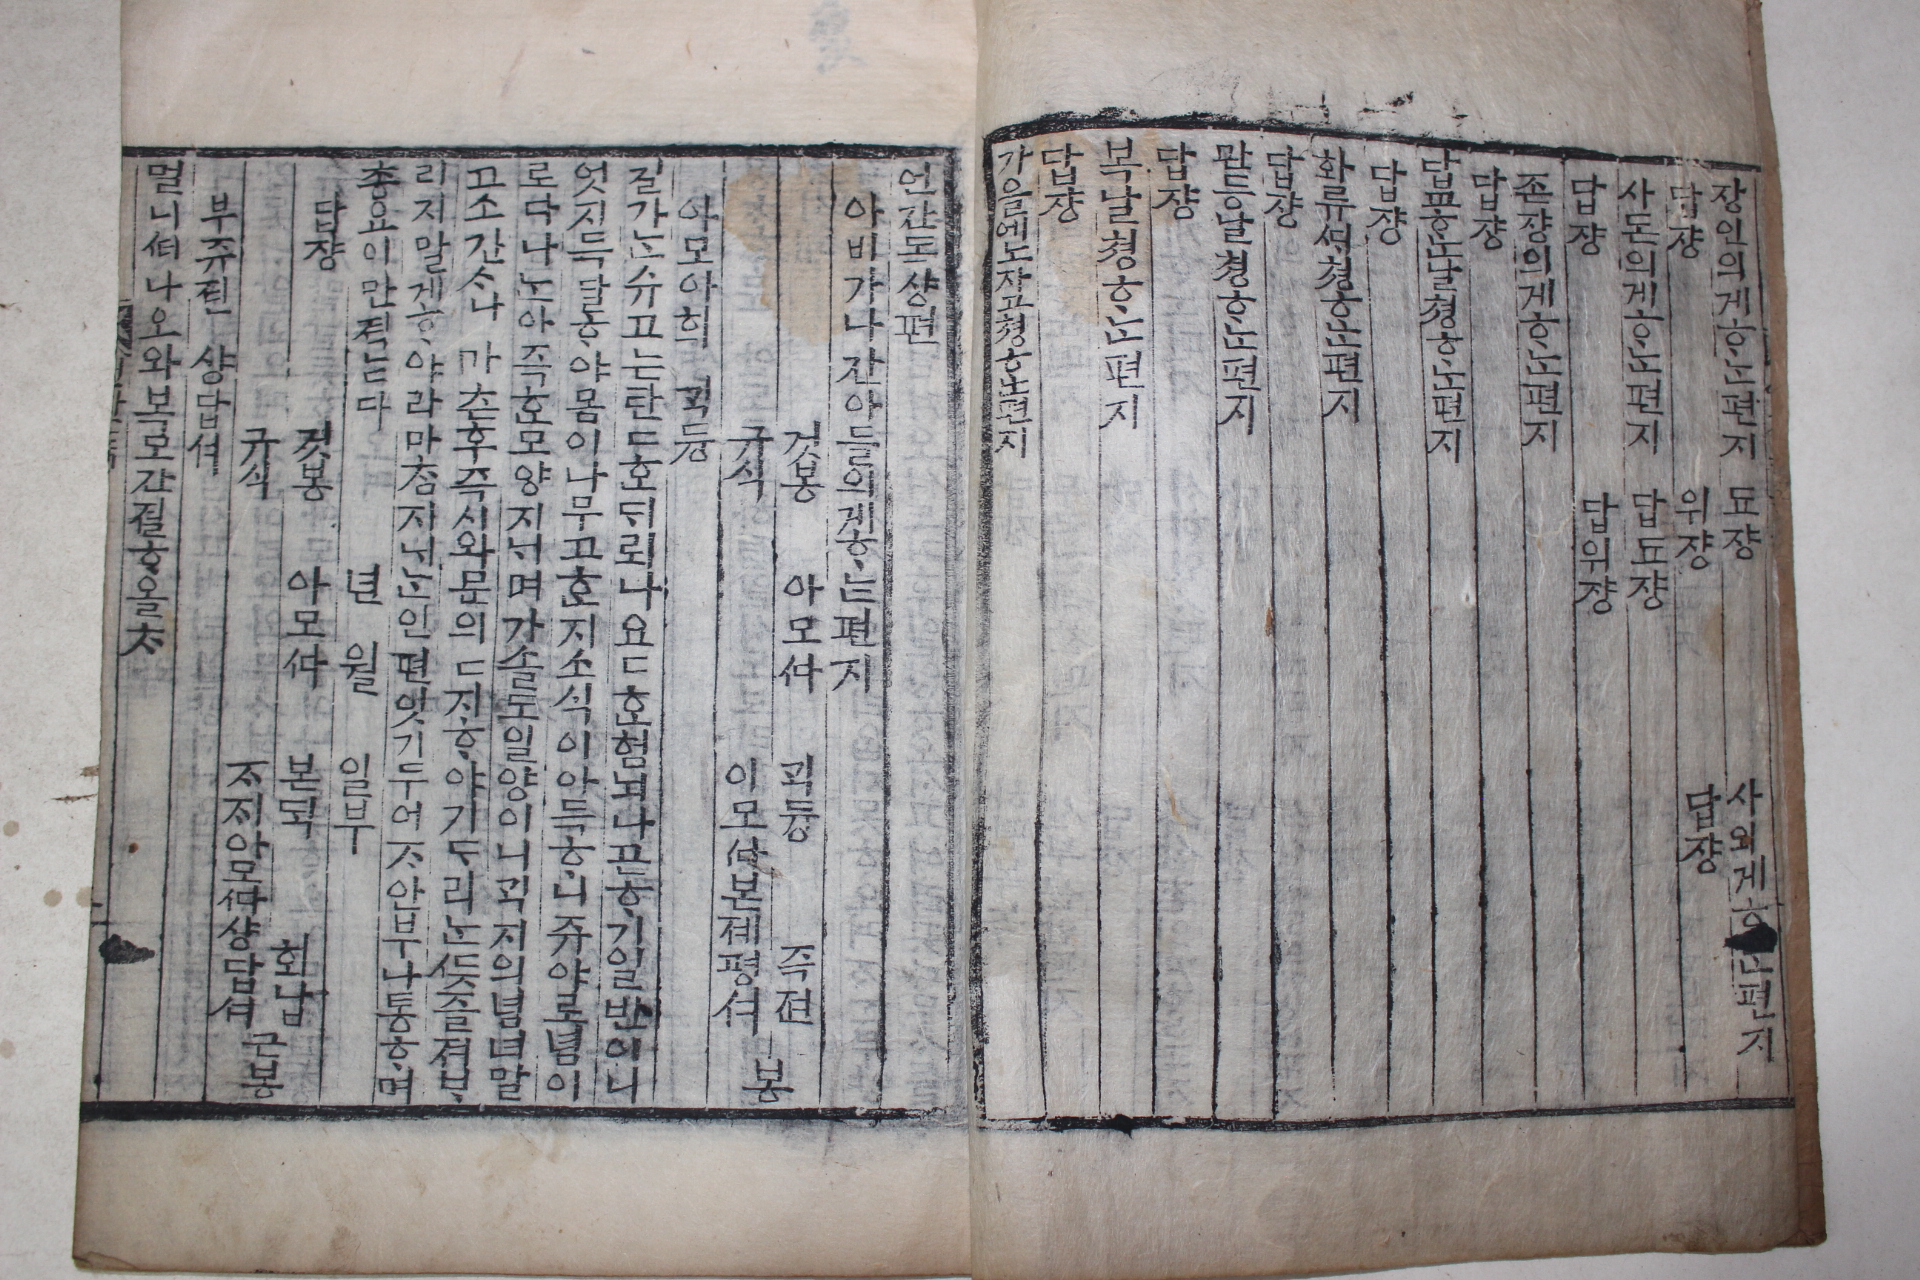 장인의게ᄒᆞᄂᆞᆫ편지 사외게ᄒᆞᄂᆞᆫ편지
답쟝 답쟝
사돈의게ᄒᆞᄂᆞᆫ편지 됴쟝
답쟝 위쟝
존쟝의게ᄒᆞᄂᆞᆫ편지 답됴쟝
답쟝 답위쟝
답교ᄒᆞᄂᆞᆫ날쳥ᄒᆞᄂᆞᆫ편지
답쟝
화류셔쳥ᄒᆞᄂᆞᆫ편지
답쟝
관등날쳥ᄒᆞᄂᆞᆫ편지
답쟝
복날쳥ᄒᆞᄂᆞᆫ편지
답쟝
가을에노쟈고쳥ᄒᆞᄂᆞᆫ편지
언간독샹편
아비가나간아들의게ᄒᆞᄂᆞᆫ편지
것봉 아모ᄯᅡ ᄀᆡᆨ듕 즉젼
규식 이모ᄯᅡ본졔평셔 봉
아모아ᄒᆡ ᄀᆡᆨ듕
길가ᄂᆞᆫ슈고ᄂᆞᆫ탄ᄐᆞᆫᄒᆞᆫᄃᆡ로나 ᄒᆞᆫ험뇌나ᄀᆞᆮᄒᆞ기일반이니
엇지득달ᄒᆞ야몸이나무고ᄒᆞᆫ지소식이아득ᄒᆞ니쥬야로념이
로다나ᄂᆞᆫ아즉ᄒᆞᆫ모양지ᄂᆡ며가솔도일양이니ᄀᆡᆨ지의념녀말
고소간ᄉᆞ나 마ᄎᆞᆫ후즉시와문의ᄃᆡ지ᄒᆞ야기ᄃᆞ리ᄂᆞᆫᄯᅳᆺ즐져ᄇᆞ
리지말게ᄒᆞ야라마ᄎᆞᆷ지ᄂᆡᄂᆞᆫ인편잇기두어ᄌᆞ안부나통ᄒᆞ며
춍요이만젹ᄂᆞᆫ다
년 월 일부
답쟝 것봉 아모ᄯᅡ 본ᄃᆡᆨ 회납
규식 ᄌᆞᄌᆡ아모ᄯᅡ샹답셔 근봉
부쥬젼 샹답셔
멀니ᄯᅥ나오와복모간졀ᄒᆞ올ᄎᆞ